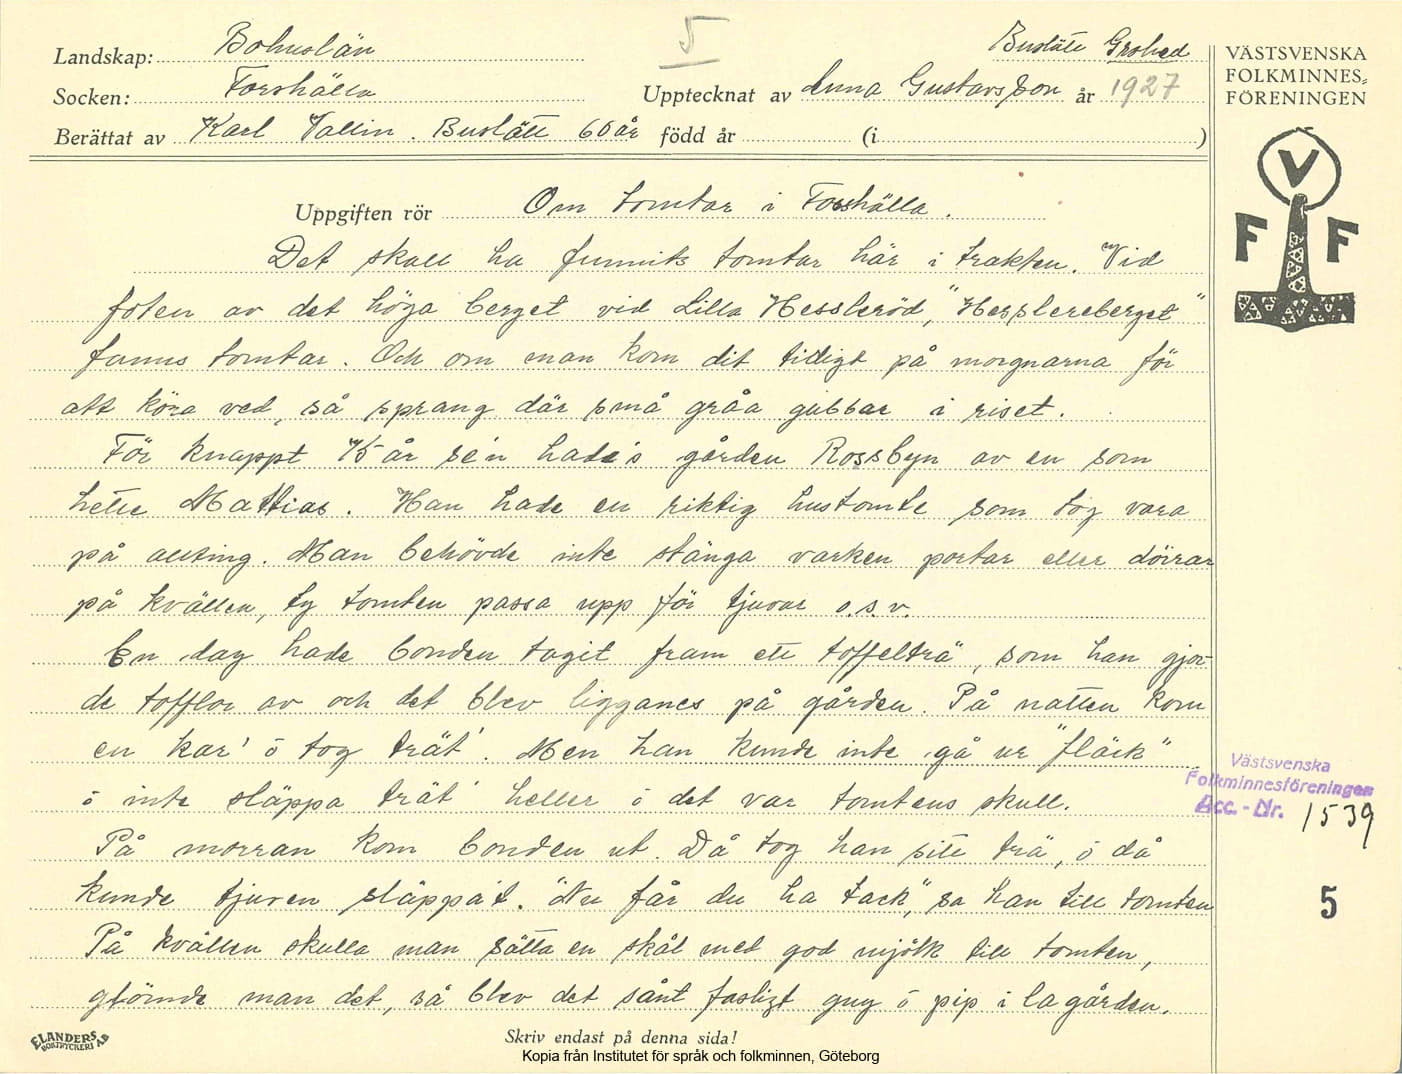 5
Buslätt Grohed
Landskap: Bohuslän
Socken: Forshälla
Upptecknat av Anna Gustavsson år 1927
Berättat av Karl Vallin. Buslätt 60 år född år (i )
VÄSTSVENSKA
FOLKMINNES-
FÖRENINGEN
V
F F
Uppgiften rör Om tomtar i Forshälla.
Det skall ha funnits tomtar här i trakten. Vid
foten av det höga berget vid Lilla Hessleröd, "Hesslereberget"
fanns tomtar. Och om man kom dit tidigt på morgnarna för
att köra ved, så sprang där små gråa gubbar i riset.
För knappt 75 år se'n hade's gården Rossbyn av en som
hette Mattias. Han hade en riktig hustomte som tog vara
på allting. Man behövde inte stänga varken portar eller dörrar
på kvällen, ty tomten passa upp för tjuvar o.s.v.
En dag hade bonden tagit fram ett toffelträ, som han gjor-
de tofflor av och det blev ligganes på gården. På natten kom
en kar' ö tog trät'. Men han kunde inte gå ur "fläck"
ö inte släppa trät' heller ö det var tomtens skull.
På morran kom bonden ut. Då tog han sitt trä, ö då
kunde tjuven släppa't. "Nu får du ha tack", sa han till tomten
På kvällen skulla man sätta en skål med god mjölk till tomten,
glömde man det, så blev det sånt fasligt gny ö pip i lagården.
Västsvenska
Folkminnesföreningen
Acc.-Nr. 1539
5
ELANDERS
BOKTRYCKERI AB
Skriv endast på denna sida!
Kopia från Institutet för språk och folkminnen, Göteborg